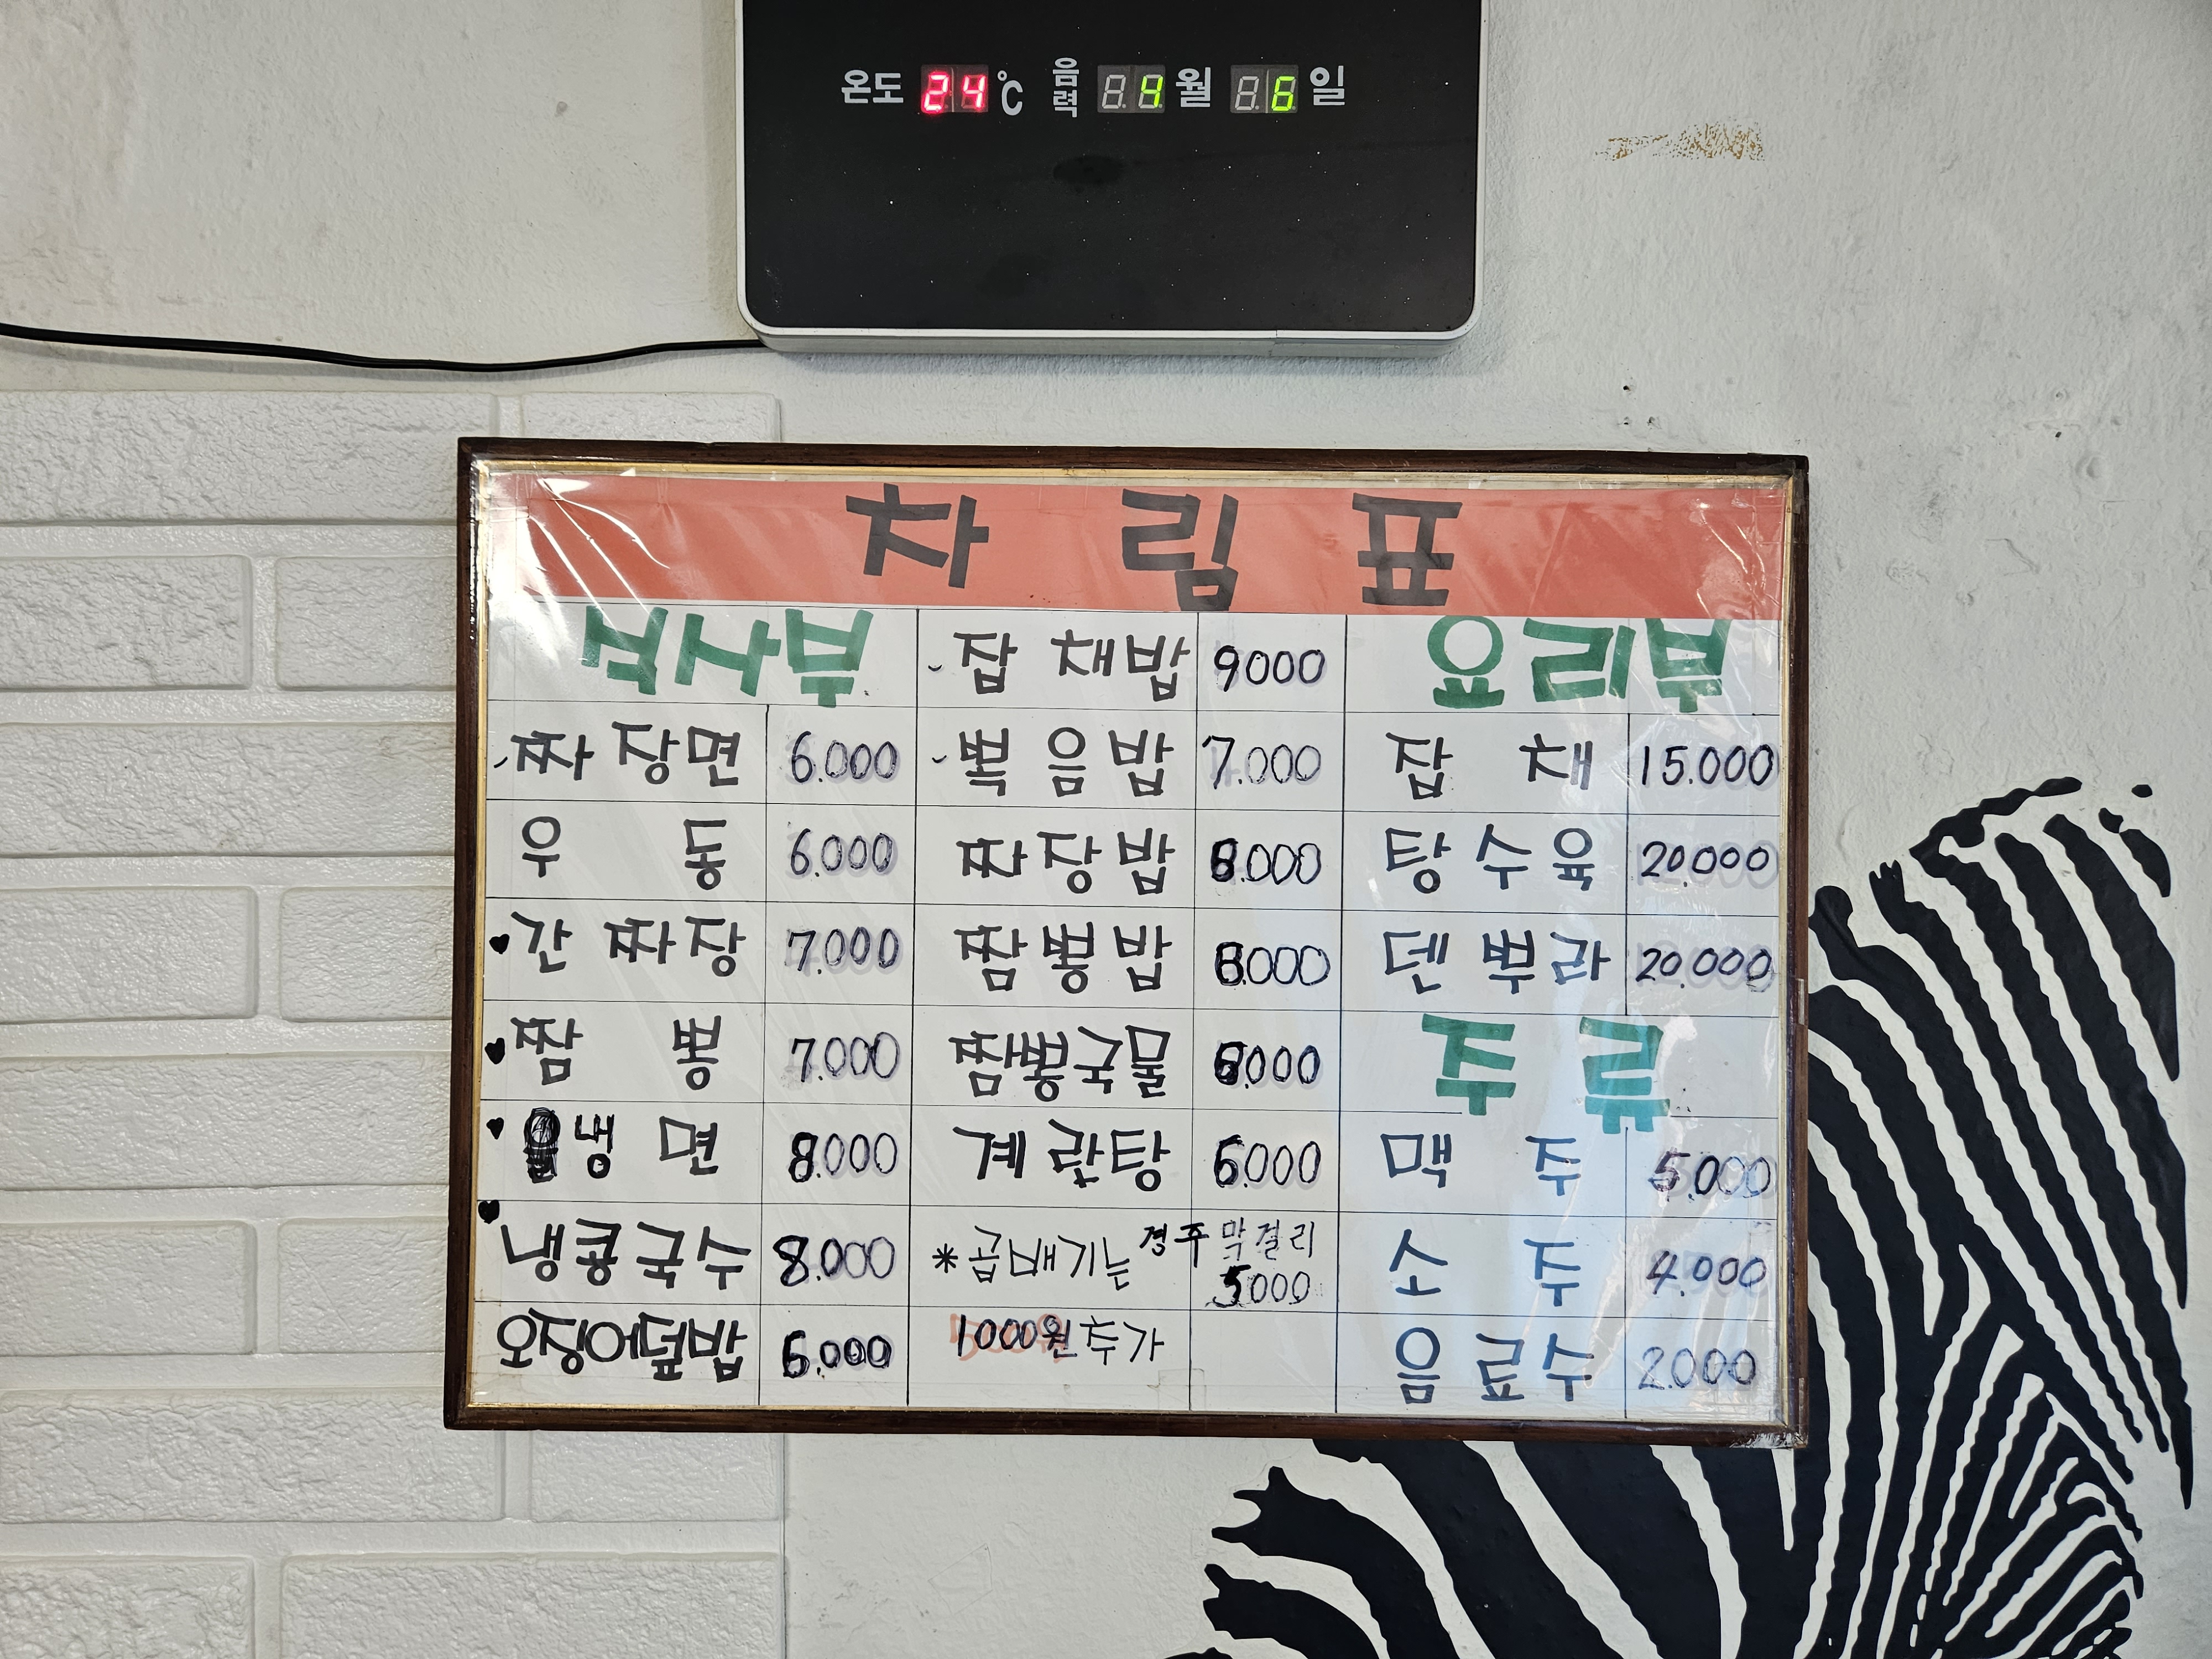 온도 24℃ 음력 4월 6일
차림표
식사부
짜장면 6.000
우동 6.000
간짜장 7.000
짬뽕 7.000
냉면 8.000
냉콩국수 8.000
오징어덮밥 6.000
잡채밥 9000
볶음밥 7.000
짜장밥 8.000
짬뽕밥 8.000
짬뽕국물 6.000
계란탕 6.000
*곱빼기는
1000원추가
경주막걸리
5000
요리부
잡채 15.000
탕수육 20.000
덴뿌라 20.000
주류
맥주 5.000
소주 4.000
음료수 2.000